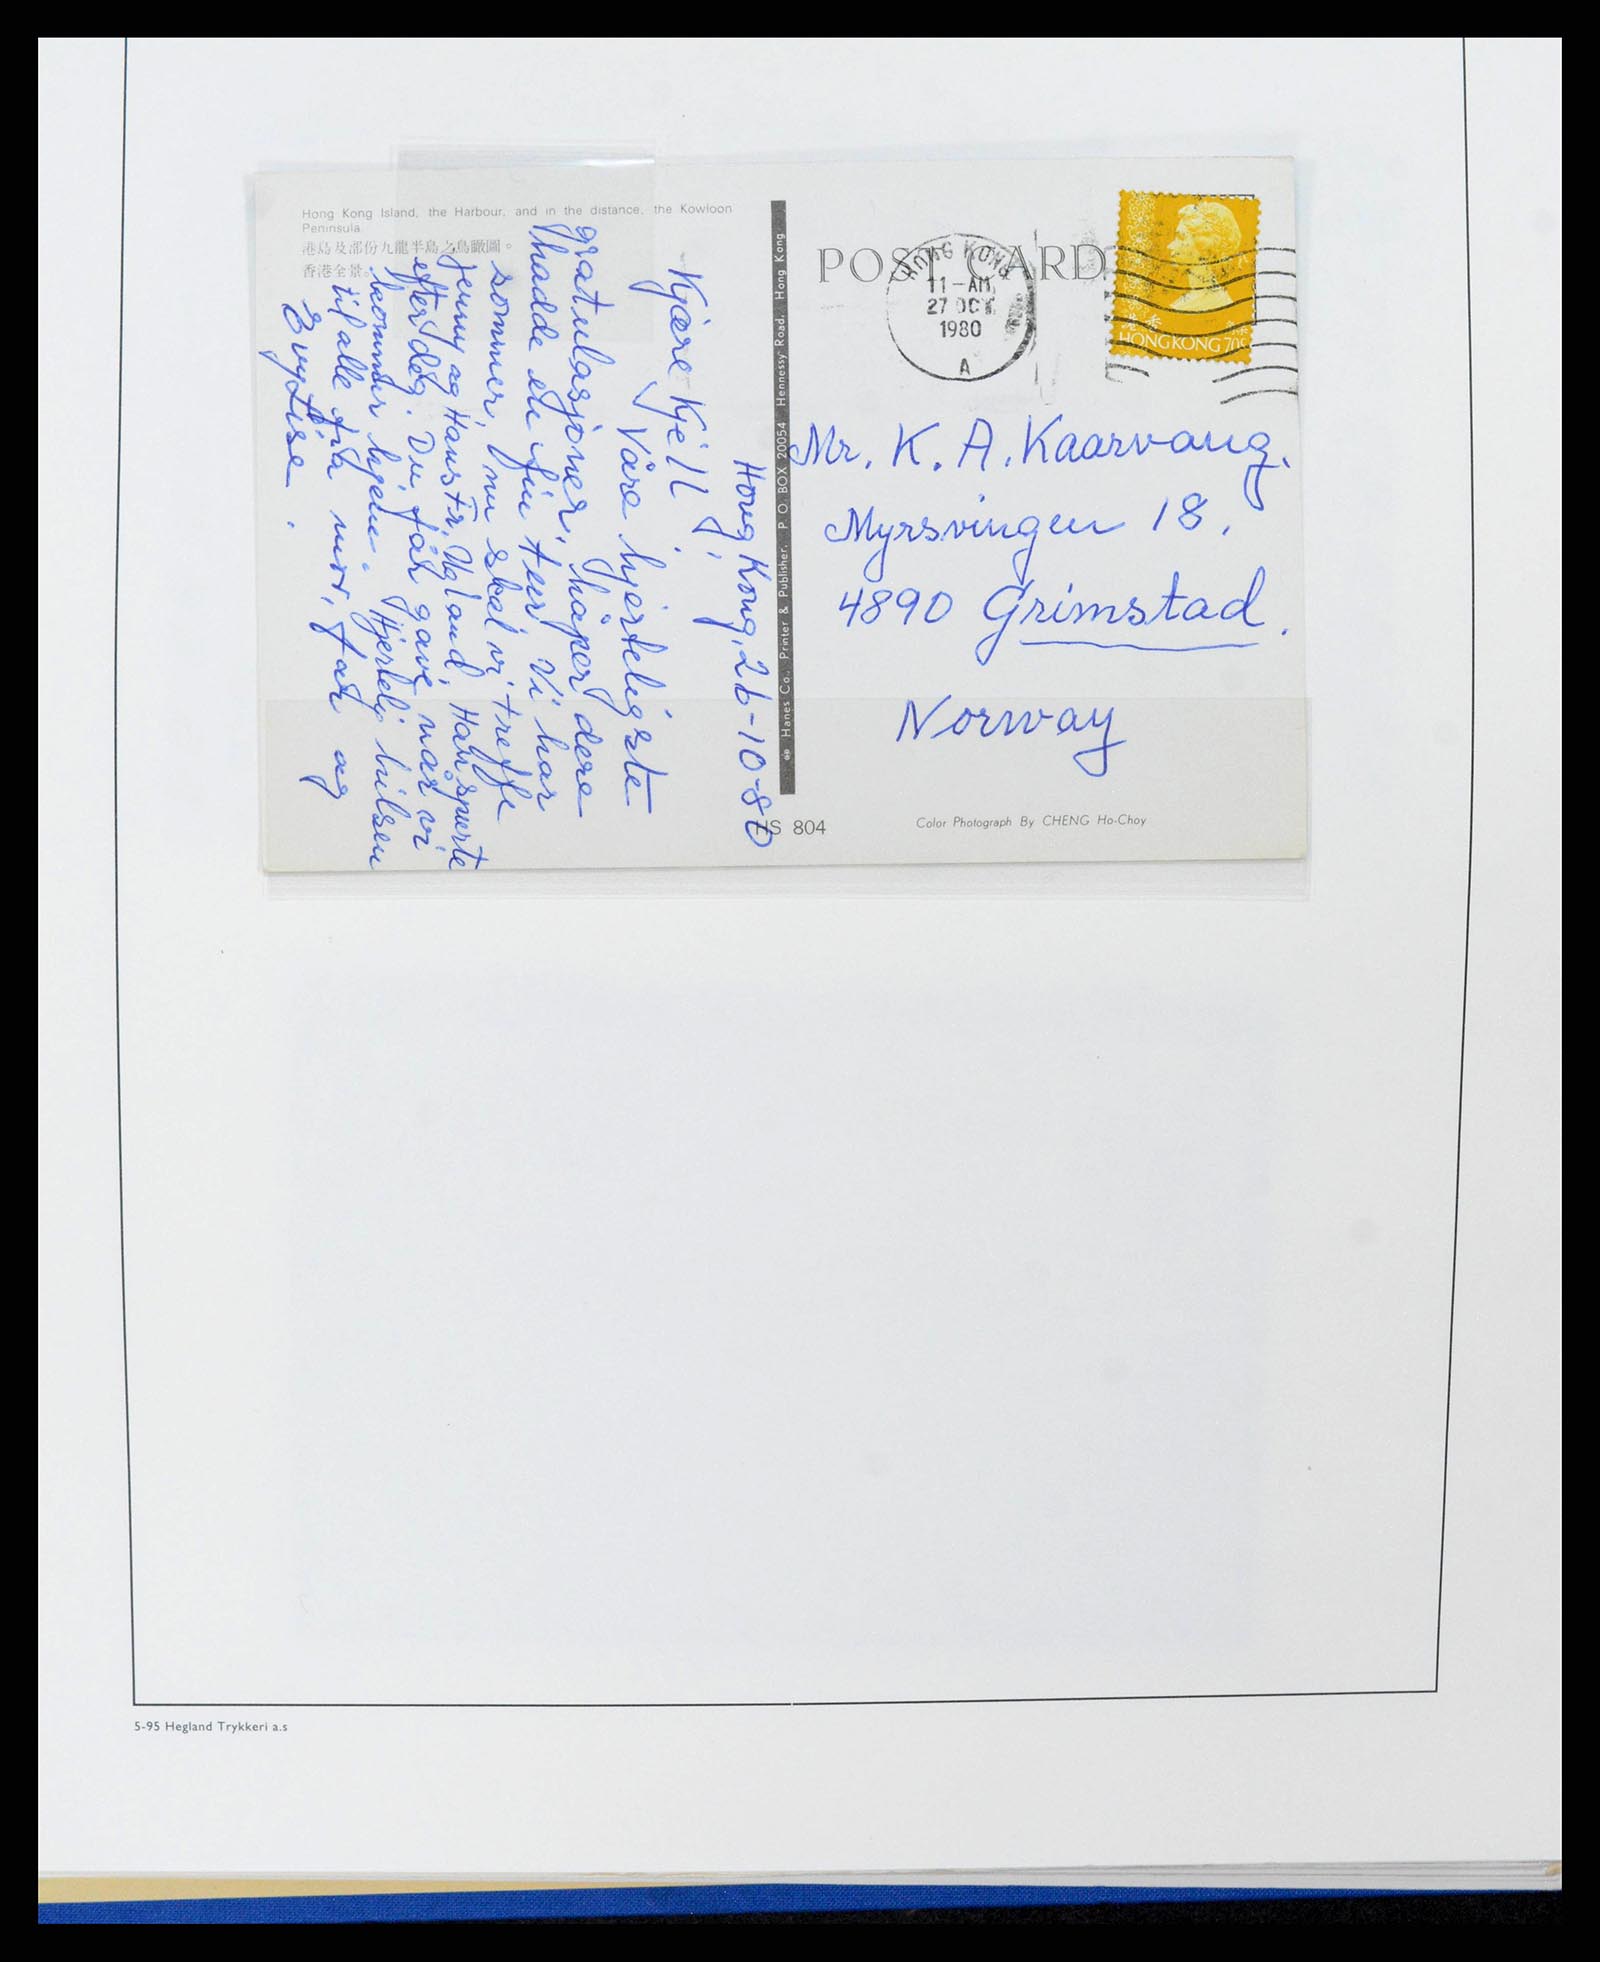 Hong Kong Island, the Harbour, and in the distance, the Kowloon
Peninsula.
港島及部份九龍半島之鳥瞰圖。
香港全景。
Hong Kong, 26-10-80
Kjære Kjell!
Våre hjerteligste
gratulasjoner, håper dere
hadde en fin tur. Vi har
sommer, nu skal vi treffe
Jenny og Hans Fr. Ugland. Han spurte
efter deg. Du får gave når vi
kommer hjem. Hjertelig hilsen
til alle fra mor, far og
Evy Lise.
Hanes Co., Printer & Publisher, P. O. BOX 20054 Hennessy Road, Hong Kong
HS 804
POST CARD
HONG KONG
11-AM
27 OCT
1980
A
香港
HONG KONG 70c
Mr. K. A. Kaarvang.
Myrsvingen 18.
4890 Grimstad.
Norway
Color Photograph By CHENG Ho-Choy
5-95 Hegland Trykkeri a.s